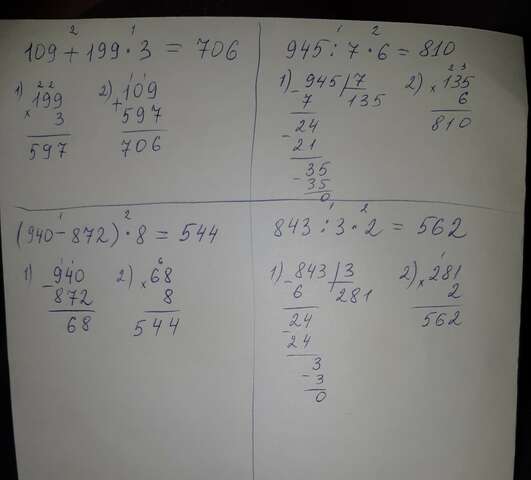 2 1
109 + 199 · 3 = 706
1) 2 2
199
× 3
597
2) 1 1
109
+ 597
706
1 2
945 : 7 · 6 = 810
1) 945 | 7
- 7 135
24
- 21
35
- 35
0
2) 2 3
× 135
6
810
1 2
(940 - 872) · 8 = 544
1) - 940
872
68
2) 6
× 68
8
544
1 2
843 : 3 · 2 = 562
1) - 843 | 3
6 281
- 24
24
3
- 3
0
2) 1
× 281
2
562